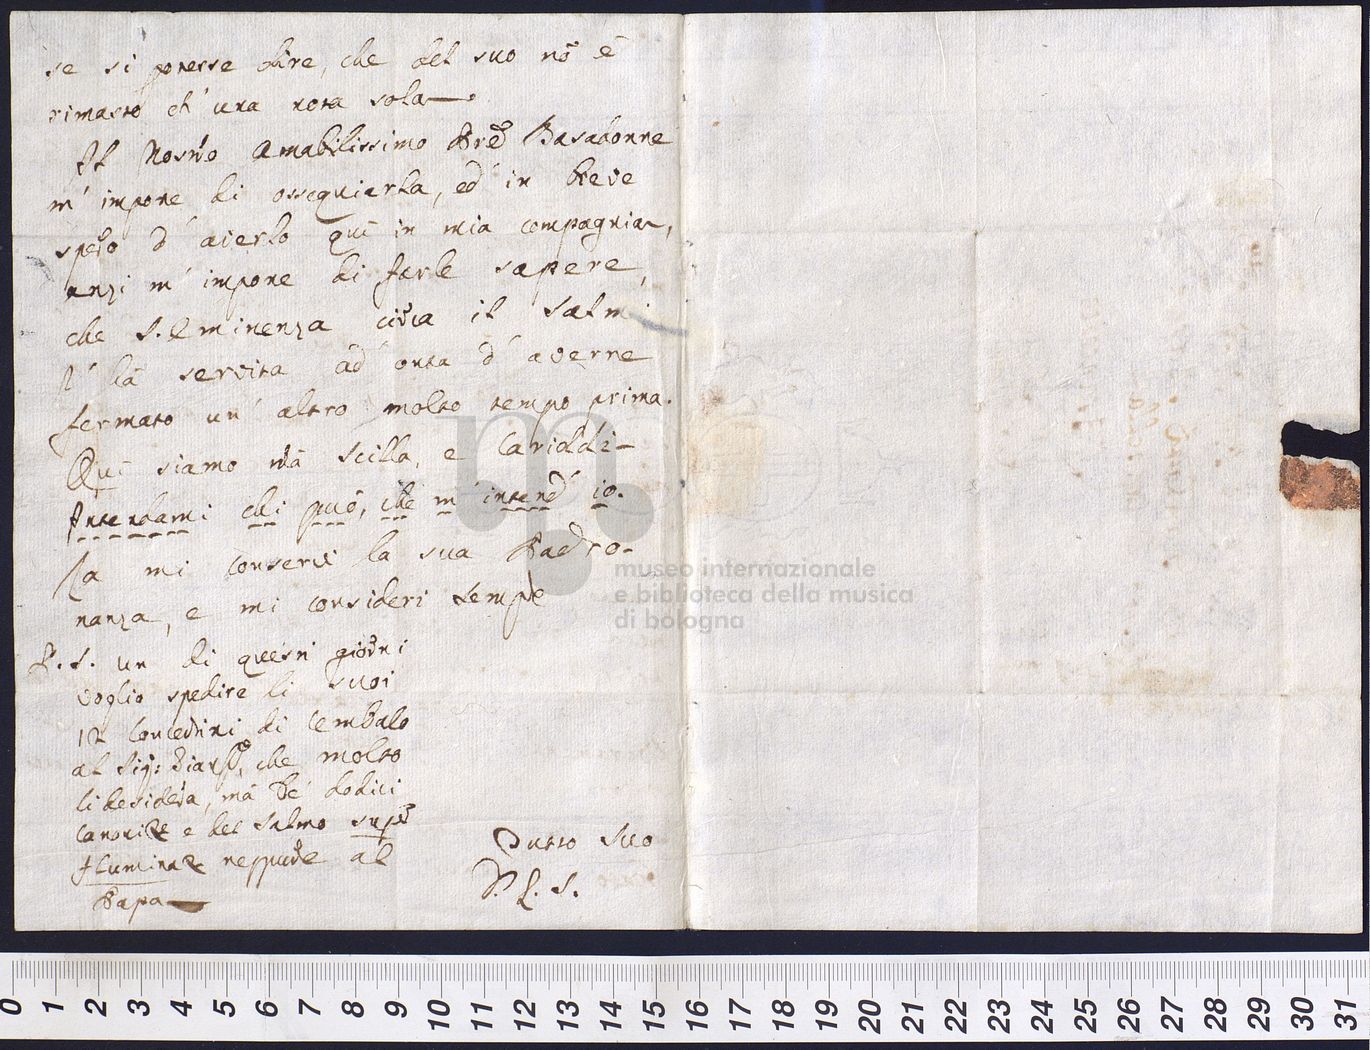 se si potesse dire, che del suo nō è
rimasto ch' una nota sola
Il Nostro Amabilissimo Pre Basadonne
m' impone di ossequiarla, ed' in breve
spero d' averlo quì in mia compagnia,
anzi m' impone di farle sapere,
che S. Eminenza circa il salmi
l' hà servita ad' onta d' averne
fermato un' altro molto tempo prima.
Quì siamo trà Scilla, e Cariddi
Intendami chi può, che m' intend' io.
La mi conservi la sua Padro-
nanza, e mi consideri sempre
P. S. un di questi giorni
voglio spedire li suoi
12 Concertini di Cembalo
al Sig:, che molto
li desidera, mà de' dodici
Canoni e del Salmo supr
Flumina neppure al
Papa
Tutto suo
P. L. S.
museo internazionale
e biblioteca della musica
di bologna
0 1 2 3 4 5 6 7 8 9 10 11 12 13 14 15 16 17 18 19 20 21 22 23 24 25 26 27 28 29 30 31